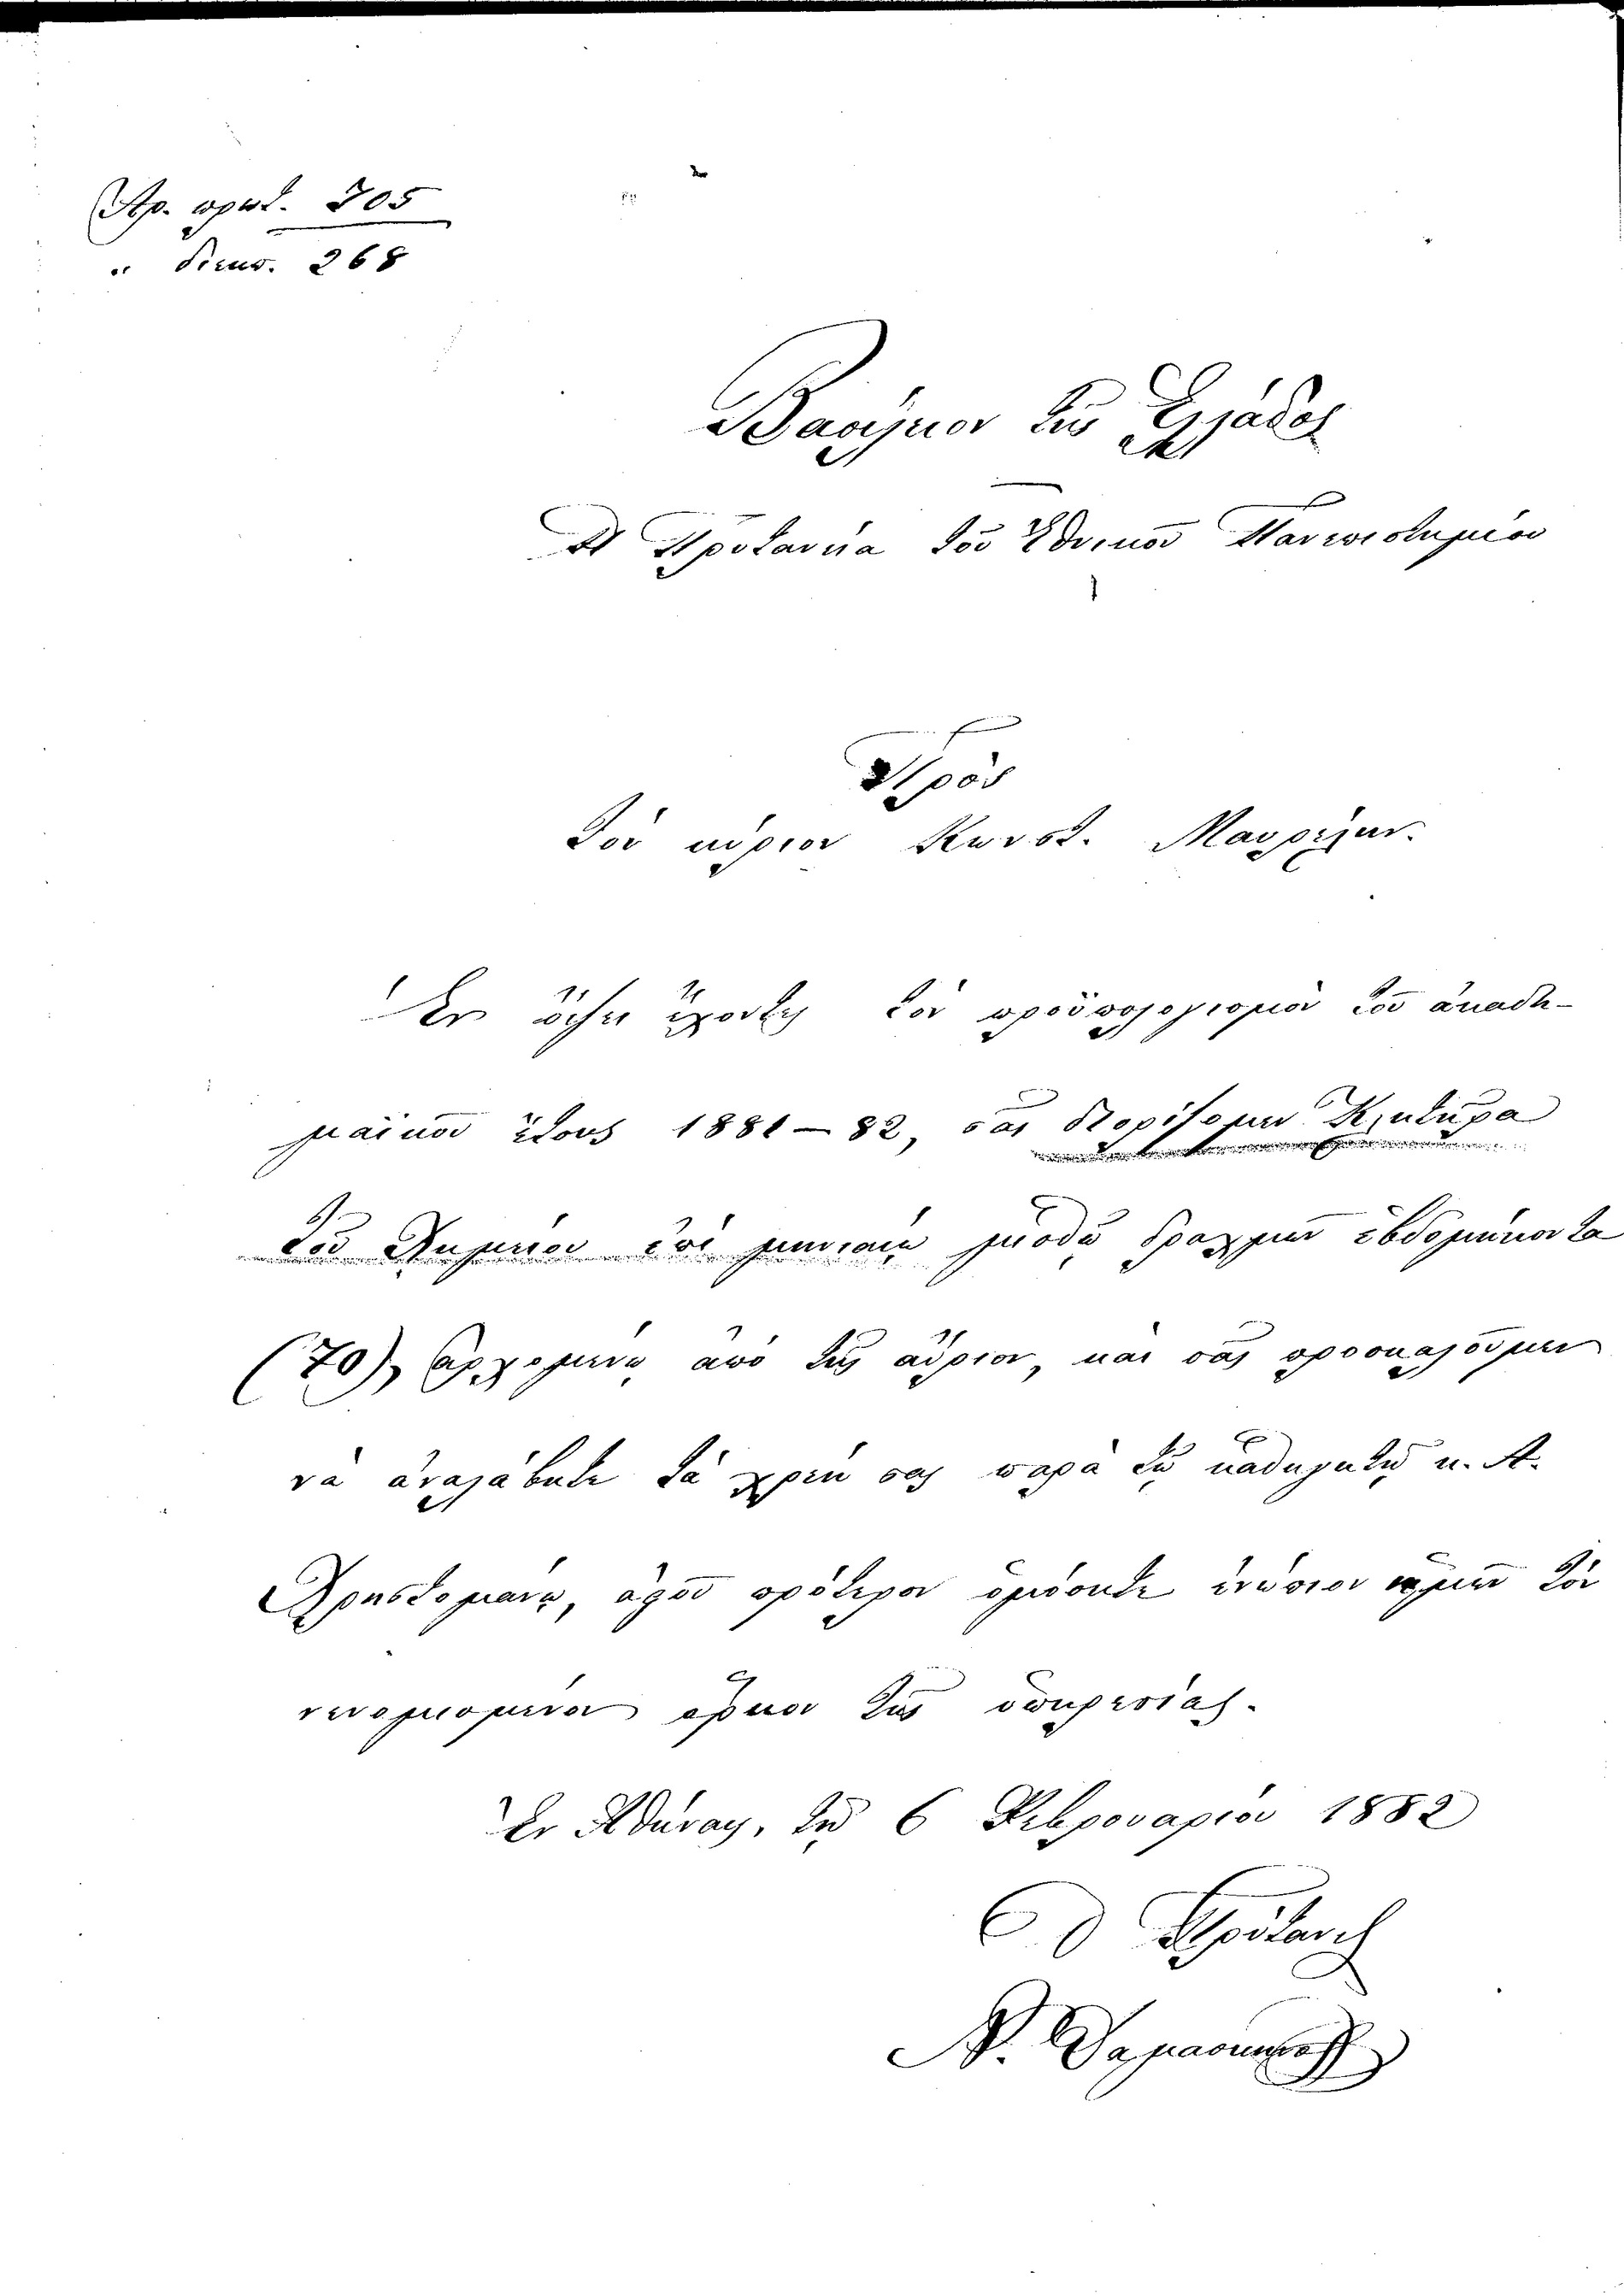 Αρ. πρωτ. 305
„ διεκπ. 268
Βασίλειον τῆς Ἑλλάδος
Ἡ Πρυτανεία τοῦ Ἐθνικοῦ Πανεπιστημίου
Πρὸς
Τὸν κύριον Κωνστ. Μαλτέζον.
Ἐν ὄψει ἔχοντες τὸν προϋπολογισμὸν τοῦ ἀκαδη-
μαϊκοῦ ἔτους 1881 – 82, σᾶς διορίζομεν Κλητῆρα
τοῦ Χημείου ἐπὶ μηνιαίῳ μισθῷ δραχμῶν ἑβδομήκοντα
(70), ἀρχομένῳ ἀπὸ τῆς αὔριον, καὶ σᾶς προσκαλοῦμεν
νὰ ἀναλάβητε τὰ χρέη σας παρὰ τῷ καθηγητῇ κ. Α.
Χρηστομάνῳ, ἀφοῦ πρότερον ὀμόσητε ἐνώπιον ἡμῶν τὸν
νενομισμένον ὅρκον τῆς ὑπηρεσίας.
Ἐν Ἀθήναις, τῇ 6 Φεβρουαρίου 1882
Ὁ Πρύτανις